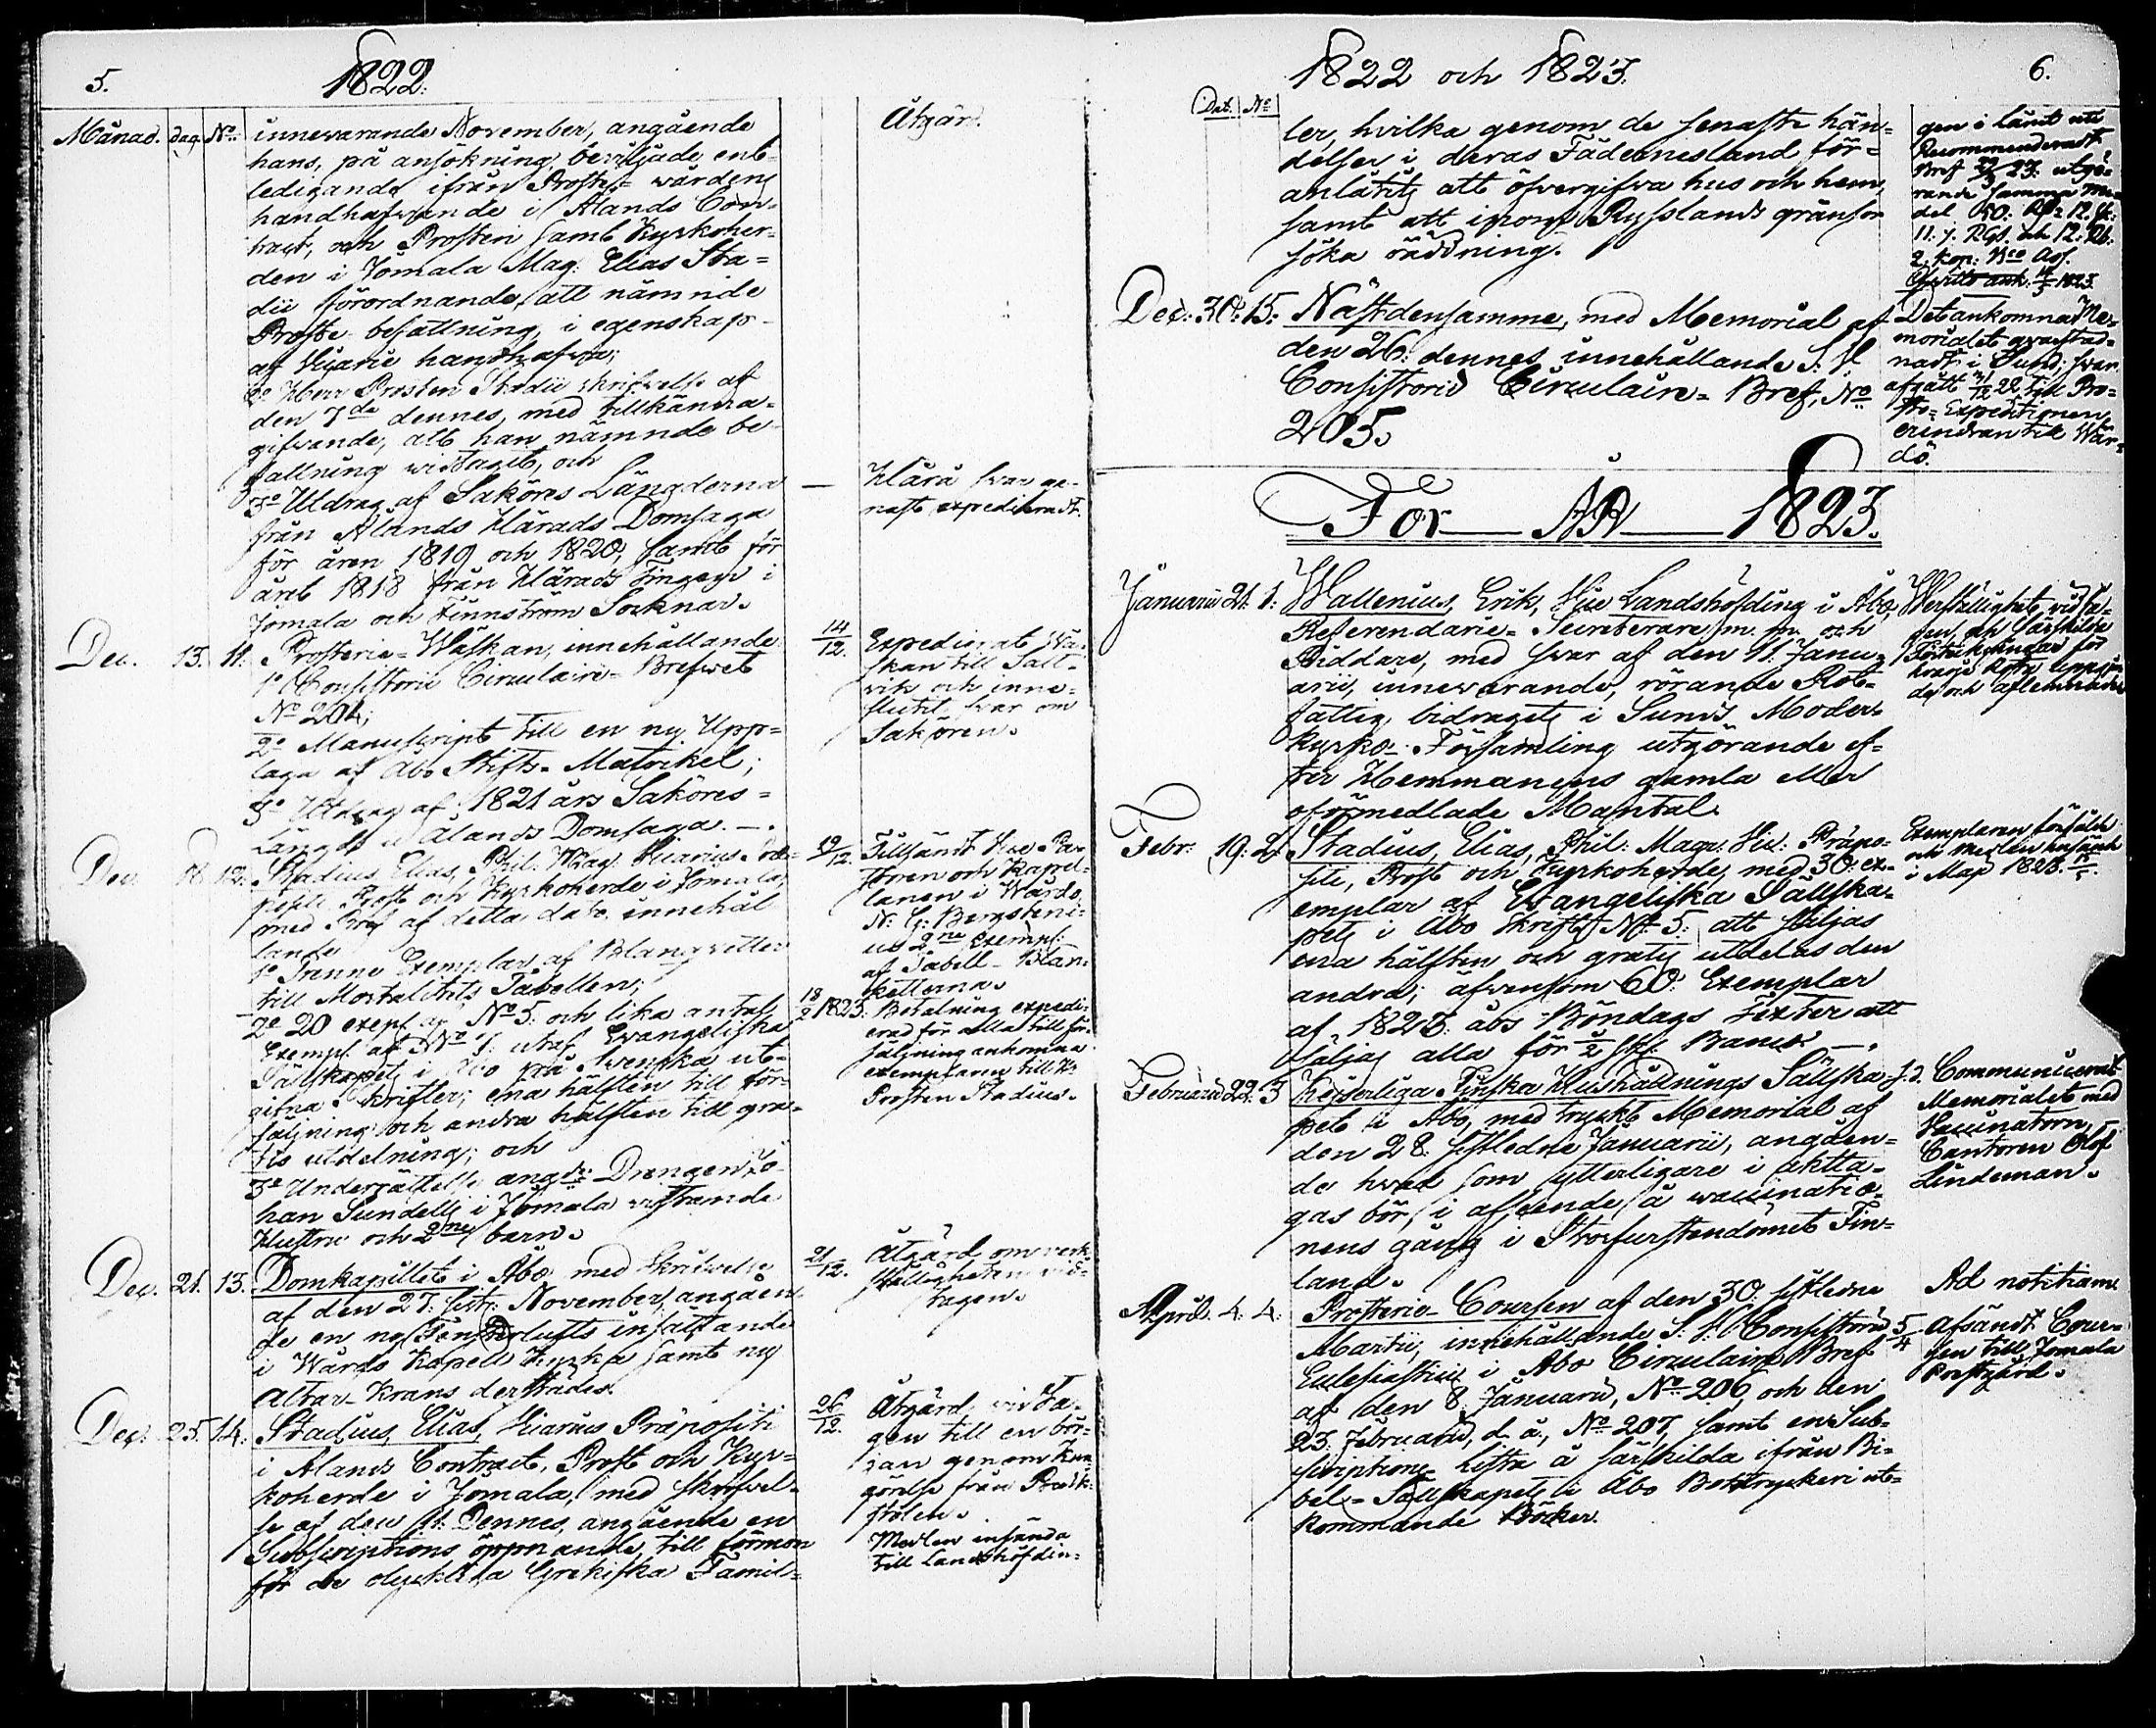 5.
1822.
Månad. dag. No.
innewarande November, angående
hans, på ansökning, beviljade ent-
ledigande ifrån Prosteri-wårdens
handhafwande i Ålands Con-
tract, och Prosten samt Kyrkoher-
den i Jomala Mag: Elias Sta-
dii förordnande, att nämnde
Proste-befattning, i egenskap
af Vicarie handhafwa;
2o Herr Prosten Stadii skrifwelse af
den 7de dennes, med tillkänna-
gifwande, att han nämnde be-
fattning widtagit, och
3o Utdrag af Saköres Längderna
från Ålands Härads Domsaga
för åren 1819 och 1820, samt för
året 1818 från Härads Tingen i
Jomala och Finnström Socknar.
Åtgärd.
— Hära swar ge-
nast expedieradt.
Dec. 13. 11. Prosterie-Wäskan, innehållande
1o Consistorii Circulaire-Brefwet
No 204;
2o Manuscript till en ny Upp-
laga af Åbo Stifts-Matrikel;
3o Utdrag af 1821 års Saköres-
Längd i Ålands Domsaga.—.
14/12. Expedierat Wä-
skan till Salt-
vik och inne-
slutit swar om
Saköret.
Dec. 18. 12. Stadius, Elias, Phil. Mag. Vicarius Præ-
positi Prost och Kyrkoherde i Jomala,
med Bref af detta dato innehål-
lande
1o Trenne Exemplar af Blanquetter
till Mortalitets Tabellen;
2o 20 exempl. af No 5. och lika antal
Exempl. af No utaf Evangeliska
Sällskapets i Åbo på Swenska ut-
gifna Skrifter; ena hälften till för-
säljning och andra hälften till gra-
tis utdelning; och
3o Underrättelse angde Drängen Jo-
han Sundells i Jomala wistande
Hustru och 2ne barn.
19/12. Tillsändt Vice Pa-
storen och Kapel-
lanen i Wårdö
N: G: Bergsteni-
us 2ne Exempl:
af Tabell-Blan-
ketterna.
18/2 1823. Betalning expedi-
erad för alla till för-
säljning ankomna
exemplaren till H:
Prosten Stadius.
Dec. 21. 13. Domkapitlet i Åbo med Skrifwelse
af den 27. sistl: November, angåen-
de en ny Fönsterlufts insättande
i Wårdö Kapell Kyrka samt ny
Altar-Krans derstädes.
21/12. Åtgärd om verk-
ställigheten wid-
tagen.
Dec. 25. 14. Stadius, Elias, Vicarius Præpositi
i Ålands Contract, Prost och Kyr-
koherde i Jomala, med skrifwel-
se af den 11. Dennes, angående en
Subscriptions öppnande, till förmon
för de olyckliga Grekiska Famil-
26/12. Åtgärd widta-
gen till en bör-
jan genom Kun-
görelse från Predik-
stolen.
Medlen insända
till Landshöfdin-
1822 och 1823.
6.
Dat. No
ler, hvilka genom de senaste hän-
delser i deras Fädernesland för-
anlåtits att öfvergifwa hus och hem,
samt att inom Rysslands gränser
söka räddning.
gen i Länet uti
Recommenderadt
Bref 23. utgö-
rande samma me-
del
11. 7. RGs. och 12. Rb:
2. kop: Bco Ass.
Qvitto ank. 1823.
Dec: 30. 15. Nästdensamme, med Memorial af
den 26. dennes innehållande S. V.
Consistorii Circulaire-Bref, No
205.
Det ankomna Me-
morialet qvarstad-
nadt i Sund; swar
afgått 31/12 22 till Pro-
ste-Expeditionen
erindran till Wår-
dö.
För År 1823.
Januarii 21. 1. Wallenius, Erik, Vice Landshöfding i Åbo,
Referendarie-Secreterare m. m. och
Riddare, med swar af den 11. Janu-
arii, innewarande, rörande Rot-
fattig bidragets i Sunds Moder-
kyrko-Församling utgörande ef-
ter Hemmanens gamla eller
oförmedlade Mantal.
Werkställighet widta-
gen, och särskilde
Förtekningar för
hvarje Rota upprätta-
de och aflemnade
Febr: 19. 2. Stadius, Elias, Phil: Magr: Vic: Præpo-
siti, Prost och Kyrkoherde, med 30. ex-
emplar af Evangeliska Sällska-
pets i Åbo Skrift No 5. att säljas
ena hälften och gratis utdelas den
andra; äfvensom 60. Exemplar
af 1823. års Böndags Texter att
säljas alla för ½ sk: Banco —.
Exemplaren försålde
och medlen insände
i Maji 1823.
Februarii 22. 3. Kejserliga Finska Hushållnings Sällska-
pets i Åbo, med tryckt Memorial af
den 28. sistledne Januarii, angåen-
de hvad som ytterligare i aktta-
gas bör, i afseende å vaccinatio-
nens gång i Storfurstendömet Fin-
land.
s. d. Communicerat
Memorialet med
Vaccinatorn,
Cantoren Olof
Lindeman.
April. 4. 4. Prosterie-Coursen af den 30. sistledne
Martii, innehållande S. V. Consistorii
Ecclesiastici i Åbo Circulaire Bref
af den 8. Januarii, No 206, och den
23. Februarii, d. å., No 207, samt en Sub-
scriptions Lista å särskilda ifrån Bi-
bel-Sällskapets i Åbo Boktryckeri ut-
kommande Böcker.
Ad notitiam
5/4 Afsändt Cour-
sen till Jomala
Prestgård.